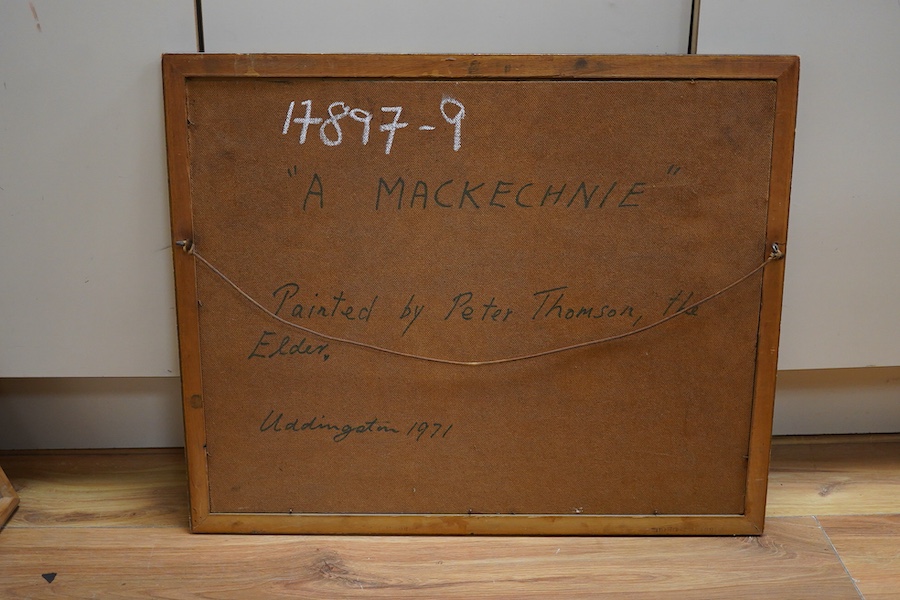 17897-9
"A MACKECHNIE"
Painted by Peter Thomson, the
Elder.
Uddingston 1971